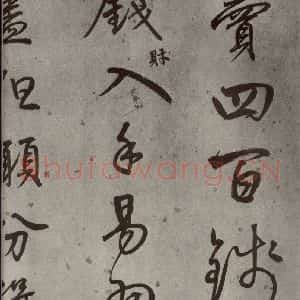 賣四百錢
錢入手易
盡但願分
Shufawang.CN